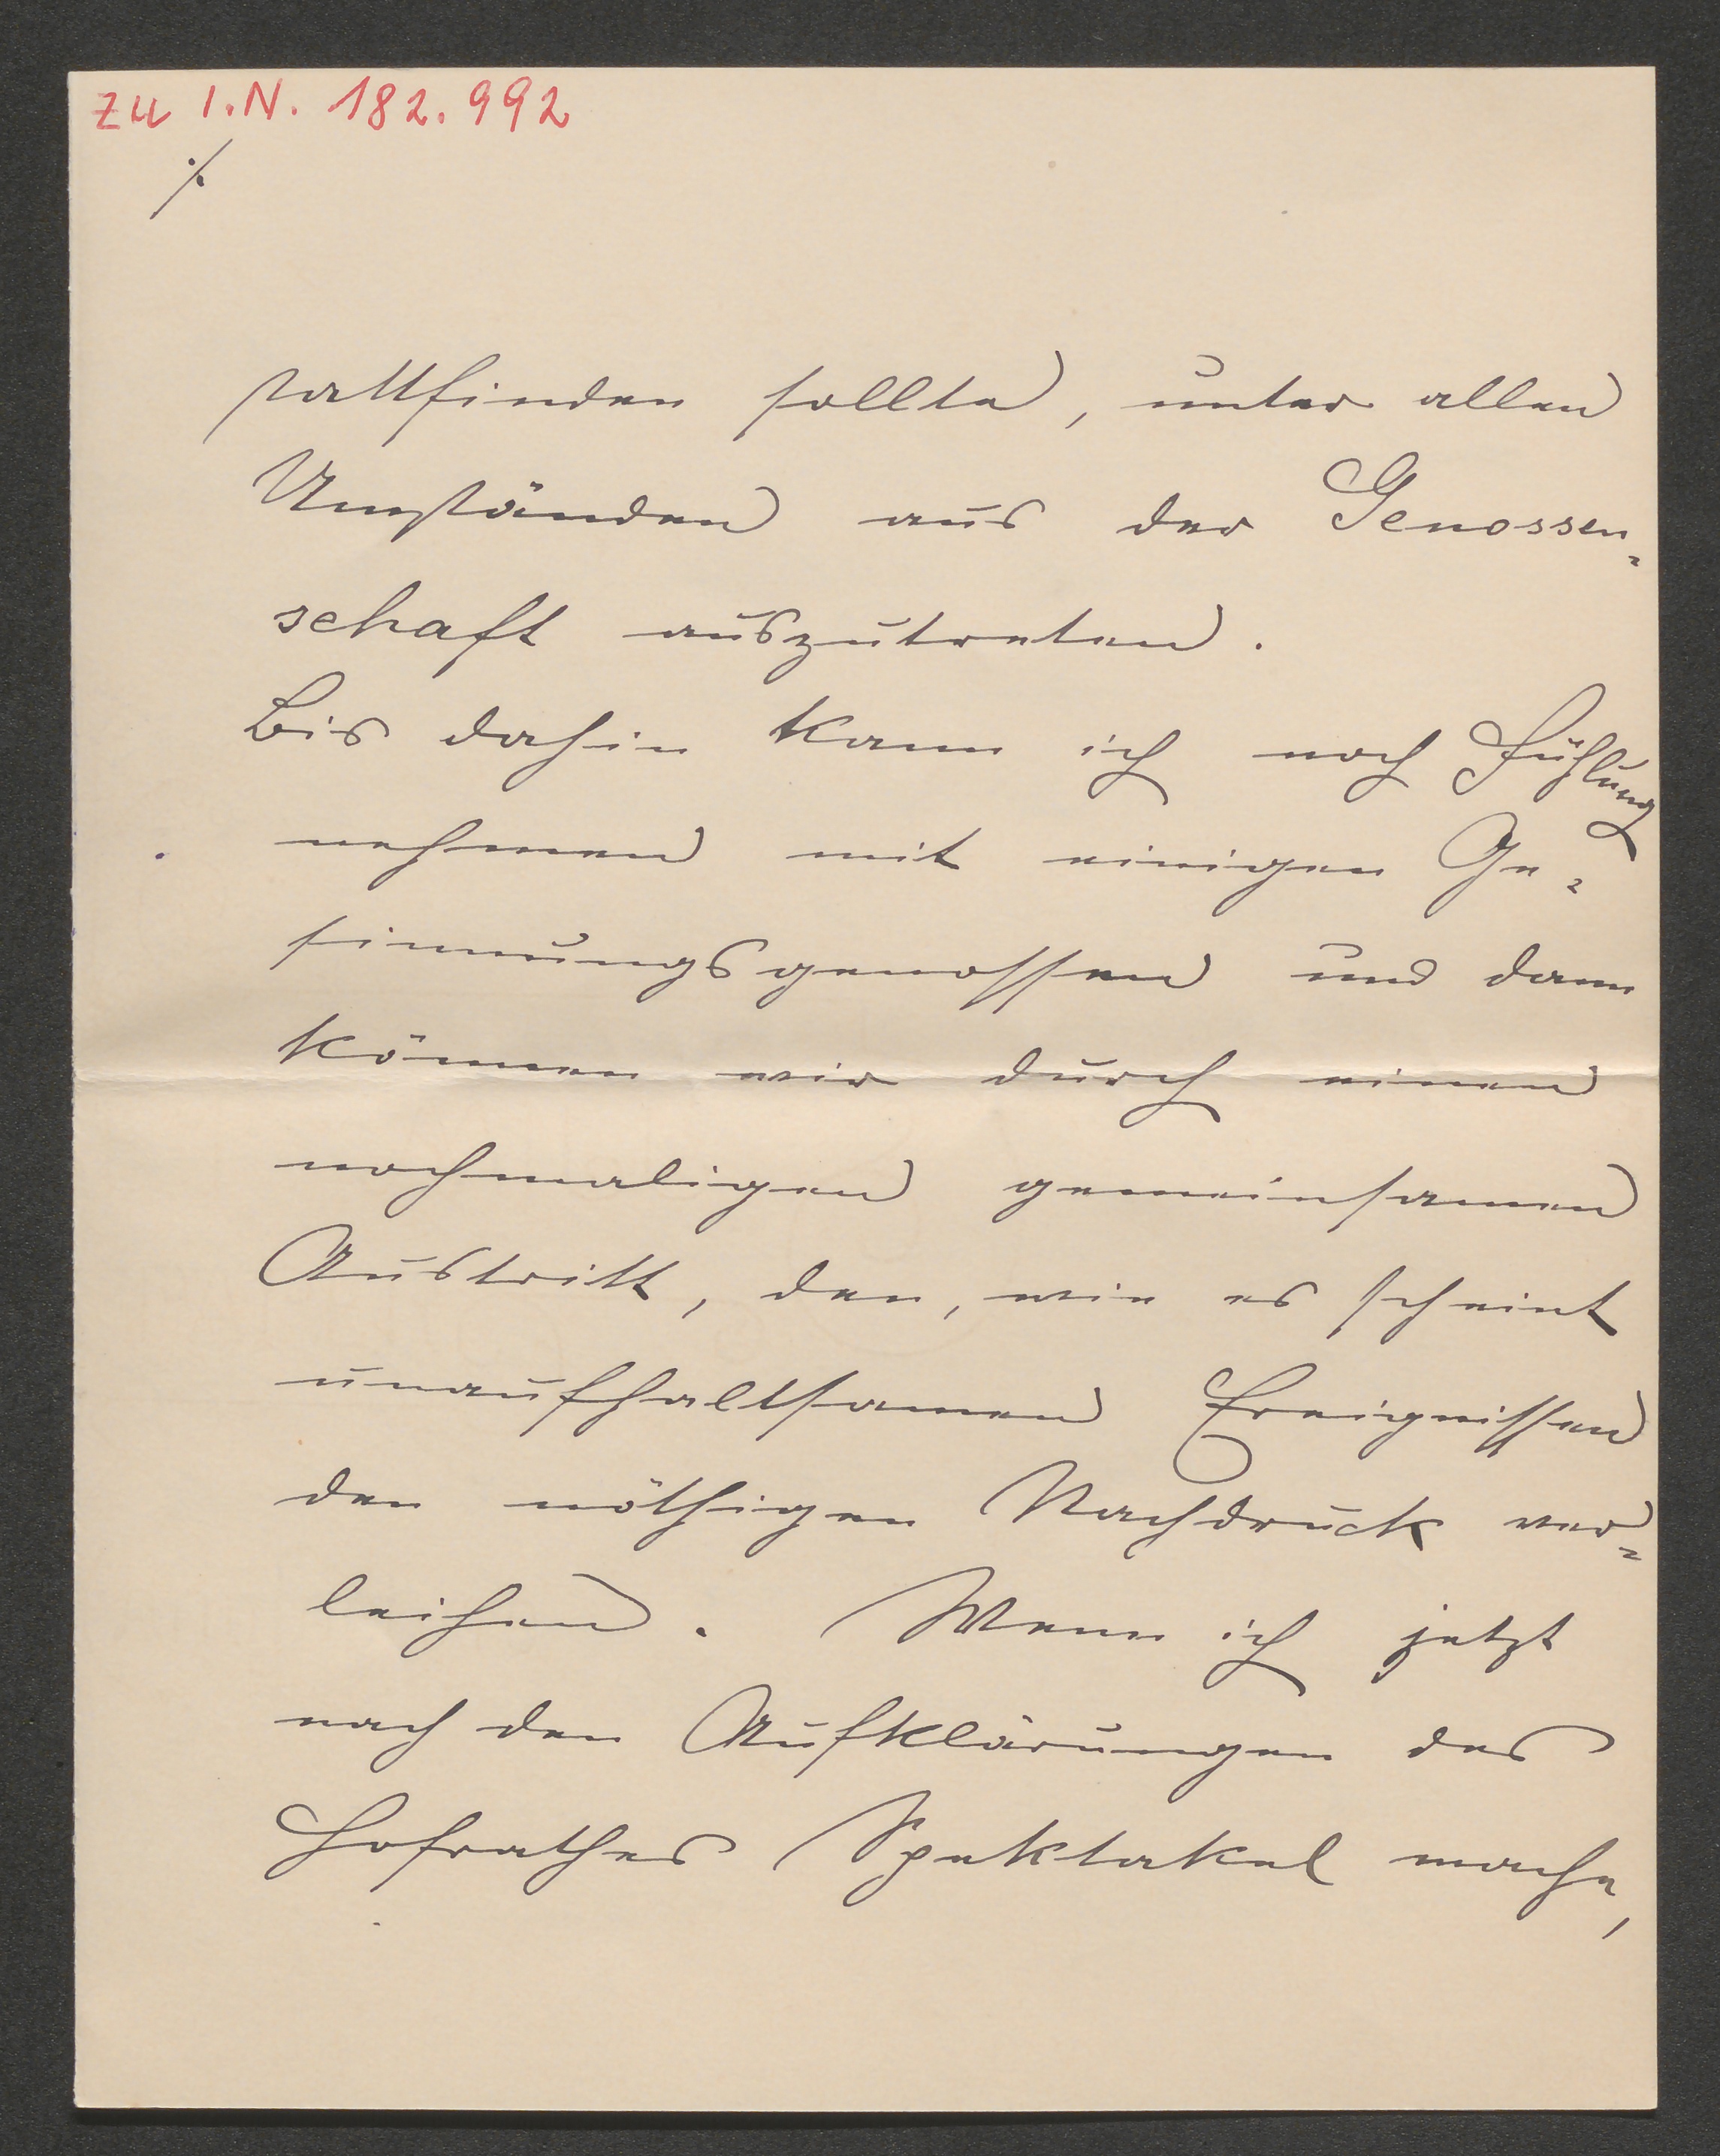 zu I.N. 182.992
./.
stattfinden sollte, unter allen
Umständen aus der Genossen-
schaft auszutreten.
Bis dahin kann ich noch Fühlung
nehmen mit einigen Ge-
sinnungsgenossen und dann
können wir durch einen
nochmaligen gemeinsamen
Austritt, den, wie es scheint
unaufhaltsamen Ereignissen
den nöthigen Nachdruck ver-
leihen. Wenn ich jetzt
nach den Aufklärungen des
Hofrathes Spektakel mache,